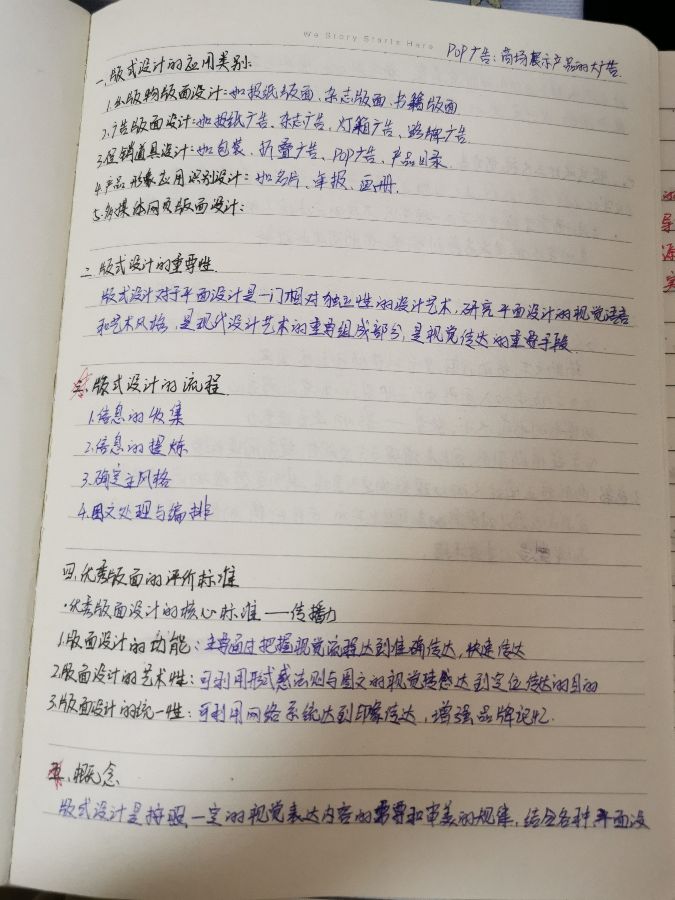 We Story Starts Here
POP广告：商场展示产品的大广告.
一、版式设计的应用类别：
1.出版物版面设计：如报纸版面、杂志版面、书籍版面
2.广告版面设计：如报纸广告、杂志广告、灯箱广告、路牌广告
3.促销道具设计：如包装、折叠广告、POP广告、产品目录.
4.产品形象应用识别设计：如名片、年报、画册.
5.多媒体网页版面设计：
二、版式设计的重要性.
版式设计对于平面设计是一门相对独立性的设计艺术，研究平面设计的视觉语言
和艺术风格，是现代设计艺术的重要组成部分，是视觉传达的重要手段.
三、版式设计的流程.
1.信息的收集
2.信息的提炼
3.确定主风格
4.图文处理与编排
四、优秀版面的评价标准
·优秀版面设计的核心标准——传播力
1.版面设计的功能：主要通过把握视觉流程达到准确传达，快速传达
2.版面设计的艺术性：可利用形式感法则与图文的视觉情感达到定位传达的目的
3.版面设计的统一性：可利用网络系统达到印象传达，增强品牌记忆.
五、概念
版式设计是按照一定的视觉表达内容的需要和审美的规律，结合各种平面设